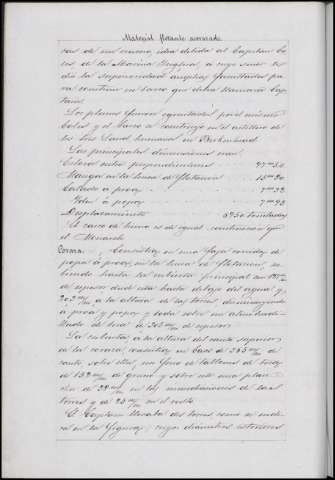 Material flotante acorazado
ras de un mismo, idea debida al Capitan Co
les de la Marina Ynglesa, a cuyo señor se
dió la superioridad amplias facultades pa
ra construir un barco que debia llamarse Cap
tain.
Los planos fueron ejecutados por el mismo
Coles y el barco se construyó en el astillero de
los Sres Laird hermanos en Birkenhead.
Las principales dimensiones son
Eslora entre perpendiculares 97m50
Manga en la linea de flotacion
Calado á proa 7m
Yden á popa 7m
Desplazamiento toneladas
El casco de hierro es de igual construccion que
el Monarch
Coraza. Consistia en una faja corrida de
popa á proa, en la linea de flotacion, su
biendo hasta la cubierta principal con
de espesor desde esta hasta debajo del agua y
203 m/m á la altura de las torres disminuyendo
á proa y popa y toda sobre un almohadi
llado de teca de 305 m/m de espesor
La cubierta á la altura del canto superior
de la coraza, consistia en baos de 255 m/m de
canto sobre ellos, un forro de tablones de teca
de 152 m/m de grueso y sobre este una plan
cha de 38 m/m en las inmediaciones de las
torres y de 25 m/m en el resto
El Captain llevaba dos torres, como se indi
ca en la figura, cuyos diámetros exteriores